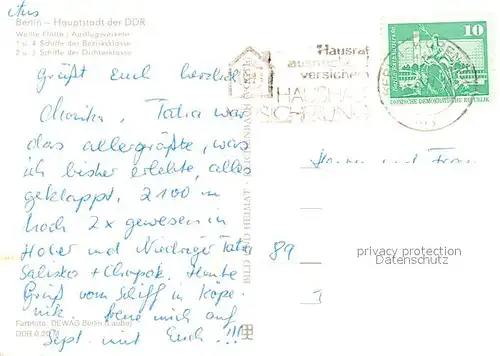 Aus
Berlin – Hauptstadt der DDR
Weiße Flotte / Ausflugsverkehr
1 u. 4 Schiffe der Bezirksklasse
2 u. 3 Schiffe der Dichterklasse
grüßt Euch herzlich
Tatra war
das allergrößte, was
ich bisher erlebte, alles
geklappt. 2100 m
hoch 2x gewesen in
Hoher und Niedriger Tatra
+ Chopok. Heute
Gruß vom Schiff in Köpe-
nik. freue mich auf
Sept. mit Euch !!!
Farbfoto: DEWAG Berlin (Laube)
BILD UND HEIMAT
Hausrat
ausreichend
versichern
HAUSHALT
VERSICHERUNG
10
DEUTSCHE DEMOKRATISCHE REPUBLIK
und Frau
89
privacy protection
Datenschutz